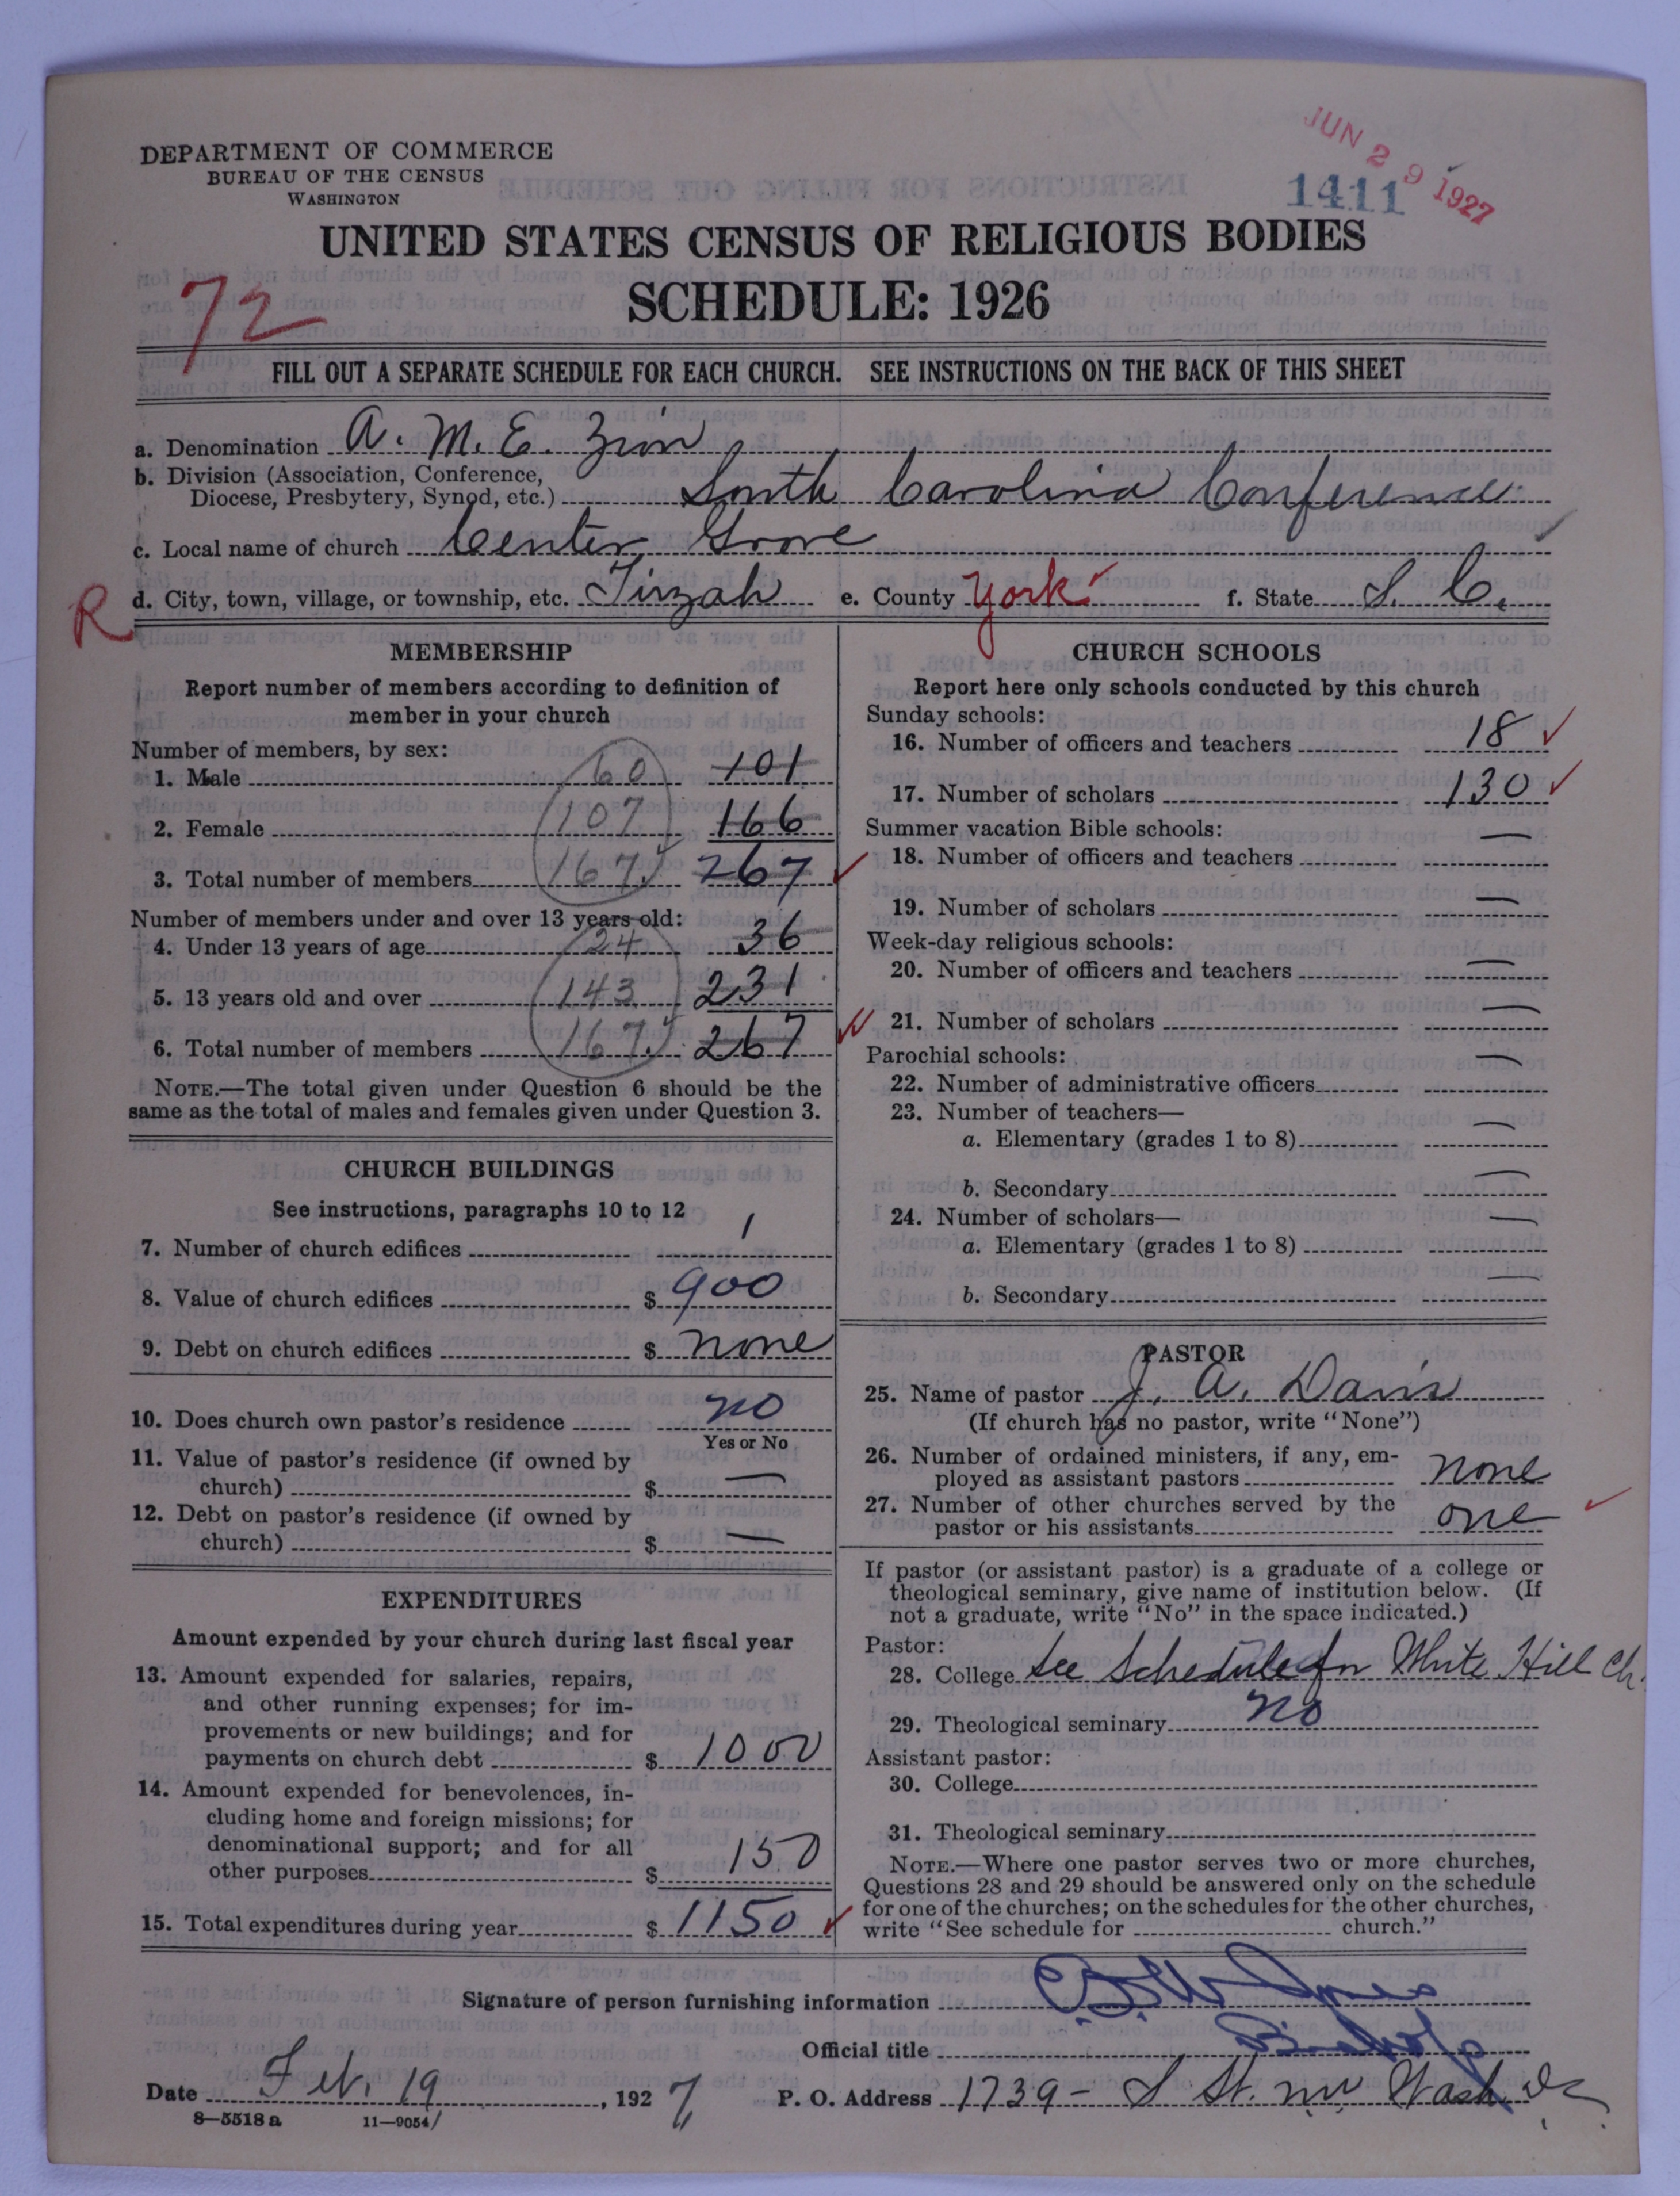 JUN 29 1927
1411
DEPARTMENT OF COMMERCE
BUREAU OF THE CENSUS
WASHINGTON
UNITED STATES CENSUS OF RELIGIOUS BODIES
SCHEDULE: 1926
72
FILL OUT A SEPARATE SCHEDULE FOR EACH CHURCH. SEE INSTRUCTIONS ON THE BACK OF THIS SHEET
a. Denomination A. M. E. Zion
b. Division (Association, Conference,
Diocese, Presbytery, Synod, etc.) South Carolina Conference
c. Local name of church Center Grove
R d. City, town, village, or township, etc. Tirzah e. County York f. State S. C.
MEMBERSHIP
Report number of members according to definition of
member in your church
Number of members, by sex:
1. Male 60 101
2. Female 107 166
3. Total number of members 167 267
Number of members under and over 13 years old:
4. Under 13 years of age 24 36
5. 13 years old and over 143 231
6. Total number of members 167 267
NOTE.—The total given under Question 6 should be the
same as the total of males and females given under Question 3.
CHURCH BUILDINGS
See instructions, paragraphs 10 to 12
7. Number of church edifices 1
8. Value of church edifices $ 900
9. Debt on church edifices $ none
10. Does church own pastor's residence no
Yes or No
11. Value of pastor's residence (if owned by
church) $ —
12. Debt on pastor's residence (if owned by
church) $ —
EXPENDITURES
Amount expended by your church during last fiscal year
13. Amount expended for salaries, repairs,
and other running expenses; for im-
provements or new buildings; and for
payments on church debt $ 1000
14. Amount expended for benevolences, in-
cluding home and foreign missions; for
denominational support; and for all
other purposes $ 150
15. Total expenditures during year $ 1150
CHURCH SCHOOLS
Report here only schools conducted by this church
Sunday schools:
16. Number of officers and teachers 18
17. Number of scholars 130
Summer vacation Bible schools:
18. Number of officers and teachers —
19. Number of scholars —
Week-day religious schools:
20. Number of officers and teachers —
21. Number of scholars —
Parochial schools:
22. Number of administrative officers —
23. Number of teachers—
a. Elementary (grades 1 to 8) —
b. Secondary —
24. Number of scholars—
a. Elementary (grades 1 to 8) —
b. Secondary —
PASTOR
25. Name of pastor J. A. Davis
(If church has no pastor, write "None")
26. Number of ordained ministers, if any, em-
ployed as assistant pastors none
27. Number of other churches served by the
pastor or his assistants one
If pastor (or assistant pastor) is a graduate of a college or
theological seminary, give name of institution below. (If
not a graduate, write "No" in the space indicated.)
Pastor:
28. College See Schedule for White Hill Ch.
29. Theological seminary no
Assistant pastor:
30. College
31. Theological seminary
NOTE.—Where one pastor serves two or more churches,
Questions 28 and 29 should be answered only on the schedule
for one of the churches; on the schedules for the other churches,
write "See schedule for church."
Signature of person furnishing information
Official title Bishop
Date Feb. 19, 1927 P. O. Address 1739 - S St. NW Wash. DC
8—5518a 11—9054